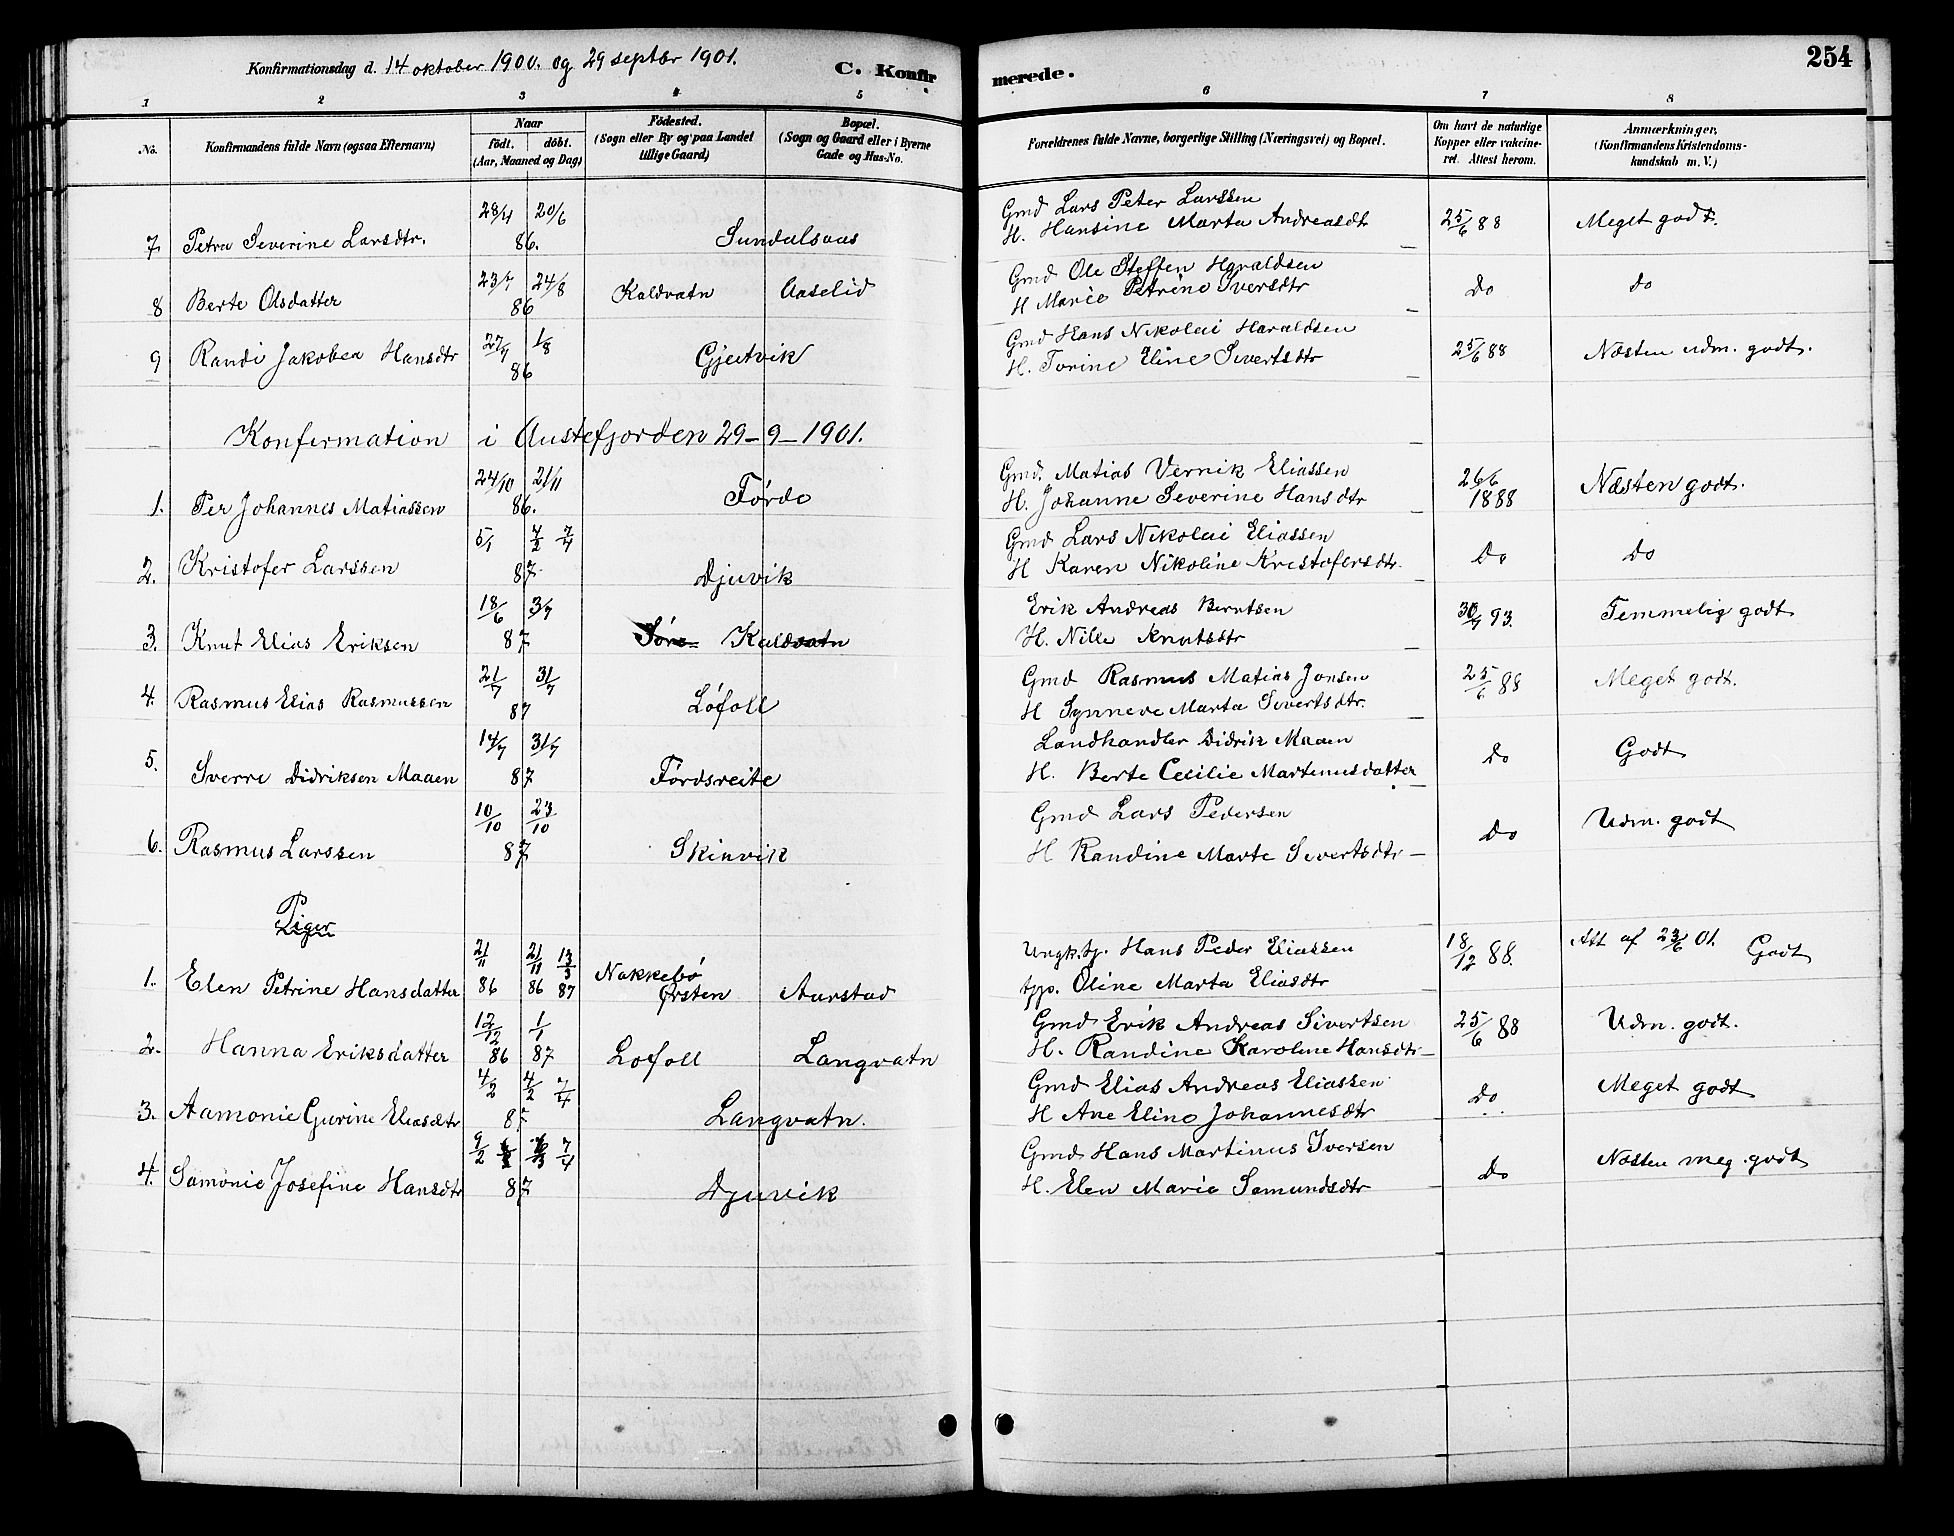 Konfirmationsdag d. 14 oktober 1900. og 29 septbr 1901. C. Konfirmerede. 254
1 2 3 4 5 6 7 8
No. Konfirmandens fulde Navn (ogsaa Efternavn) Naar födt. döbt. (Aar, Maaned og Dag) Födested. (Sogn eller By og paa Landet tillige Gaard) Bopæl. (Sogn og Gaard eller i Byerne Gade og Hus-No. Forældrenes fulde Navne, borgerlige Stilling (Næringsvei) og Bopæl. Om havt de naturlige Kopper eller vakcineret. Attest herom. Anmærkninger, (Konfirmandens Kristendomskundskab m. V.)
28/4 20/6 Gmd Lars Peter Larssen
7 Petra Severine Larsdtr. 86. Sundalsaas H. Hansine Marta Andreasdtr 25/6 88 Meget godt.
23/7 24/8 Gmd Ole Steffen Haraldsen
8 Berte Olsdatter 86 Kaldvatn Aaselid H Marie Petrine Iversdtr Do Do
27/7 1/8 Gmd Hans Nikolai Haraldsen
9 Randi Jakobea Hansdtr 86 Gjeitvik H. Torine Eline Sivertsdtr 25/6 88 Næsten udm. godt.
Konfirmation i Austefjorden 29-9-1901.
24/10 21/11 Gmd. Matias Vernik Eliassen
1. Per Johannes Matiassen 86. Förde H. Johanne Severine Hansdtr 26/6 1888 Næsten godt.
5/1 7/2 7/4 Gmd Lars Nikolai Eliassen
2. Kristofer Larssen 87 Djuvik H Karen Nikoline Kristofersdtr. Do Do
18/6 3/7 Erik Andreas Berntsen
3. Knut Elias Eriksen 87 Kaldvatn H. Nille Knutsdtr 30/7 93. Temmelig godt
21/7 31/7 Gmd Rasmus Matias Jonsen
4. Rasmus Elias Rasmussen 87 Löfoll H Synneve Marta Sivertsdtr. 25/6 88 Meget godt.
14/7 31/7 Landhandler Didrik Maaen
5. Sverre Didriksen Maaen 87 Fördsreite H. Berte Cecilie Martinusdatter Do Godt
10/10 23/10 Gmd Lars Pedersen
6. Rasmus Larssen 87 Skinvik H Randine Marte Sivertsdtr Do Udm. godt
Piger
2/11 21/11 13/3 Nakkebö Ungk. Hans Peder Eliassen
1. Elen Petrine Hansdatter 86 86 87 Örsten Aurstad Oline Marta Eliasdtr 18/12 88. Att af 23/6 01. Godt
12/12 1/1 Gmd Erik Andreas Sivertsen
2. Hanna Eriksdatter 86 87 Lofoll Langvatn H. Randine Karoline Hansdtr 25/6 88 Udm. godt.
4/2 4/2 7/4 Gmd Elias Andreas Eliassen
3. Aamonie Gurine Eliasdtr 87 Langvatn. H Ane Eline Johannesdtr Do Meget godt
9/2 7/4 Gmd Hans Martinus Iversen
4. Samonie Josefine Hansdtr 87 Djuvik H. Elen Marie Samundsdtr Do Næsten meg. godt